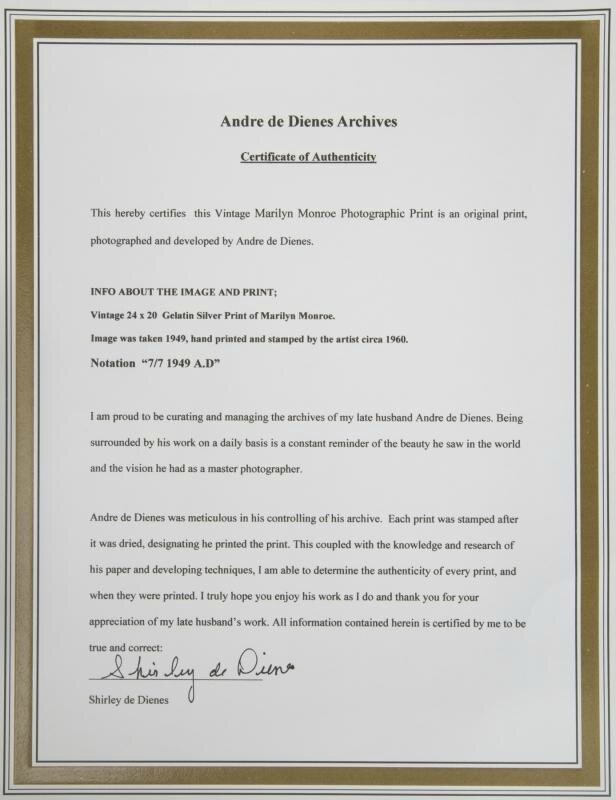 Andre de Dienes Archives
Certificate of Authenticity
This hereby certifies this Vintage Marilyn Monroe Photographic Print is an original print,
photographed and developed by Andre de Dienes.
INFO ABOUT THE IMAGE AND PRINT;
Vintage 24 x 20 Gelatin Silver Print of Marilyn Monroe.
Image was taken 1949, hand printed and stamped by the artist circa 1960.
Notation “7/7 1949 A.D”
I am proud to be curating and managing the archives of my late husband Andre de Dienes. Being
surrounded by his work on a daily basis is a constant reminder of the beauty he saw in the world
and the vision he had as a master photographer.
Andre de Dienes was meticulous in his controlling of his archive. Each print was stamped after
it was dried, designating he printed the print. This coupled with the knowledge and research of
his paper and developing techniques, I am able to determine the authenticity of every print, and
when they were printed. I truly hope you enjoy his work as I do and thank you for your
appreciation of my late husband’s work. All information contained herein is certified by me to be
true and correct:
Shirley de Dienes
Shirley de Dienes